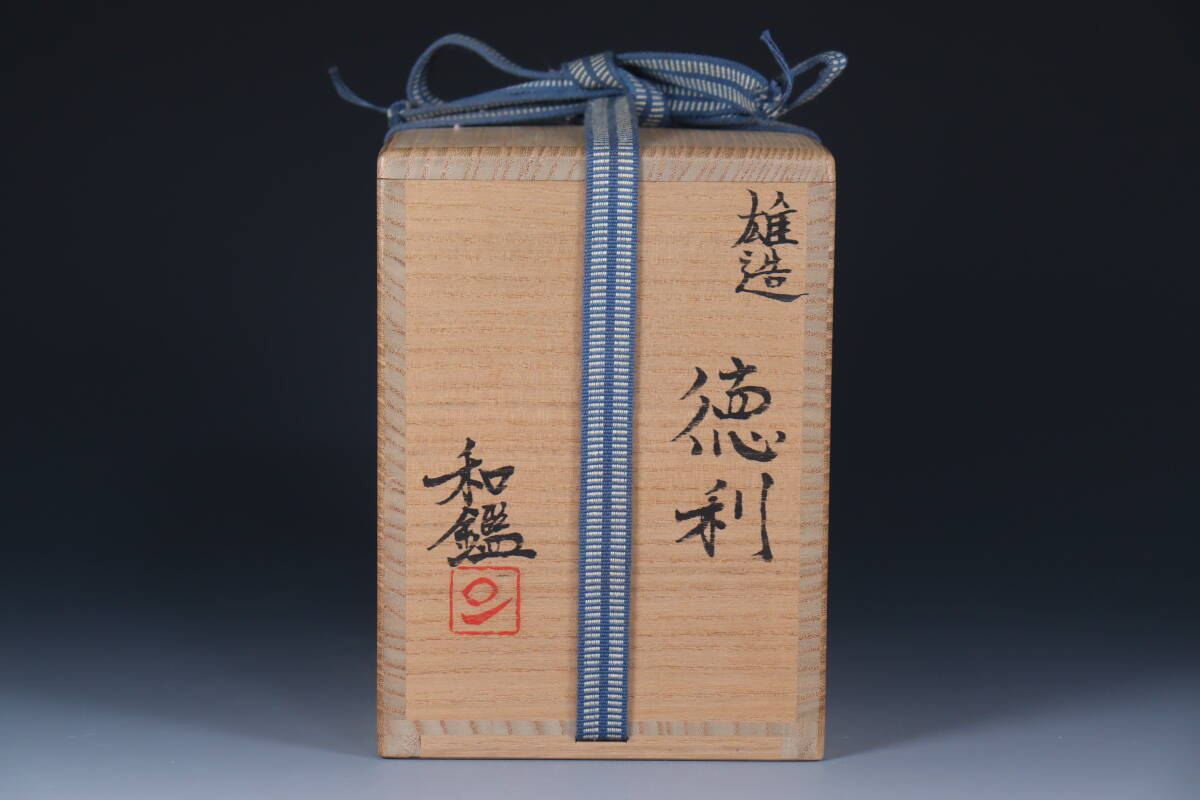 雄造
徳利
和鑑